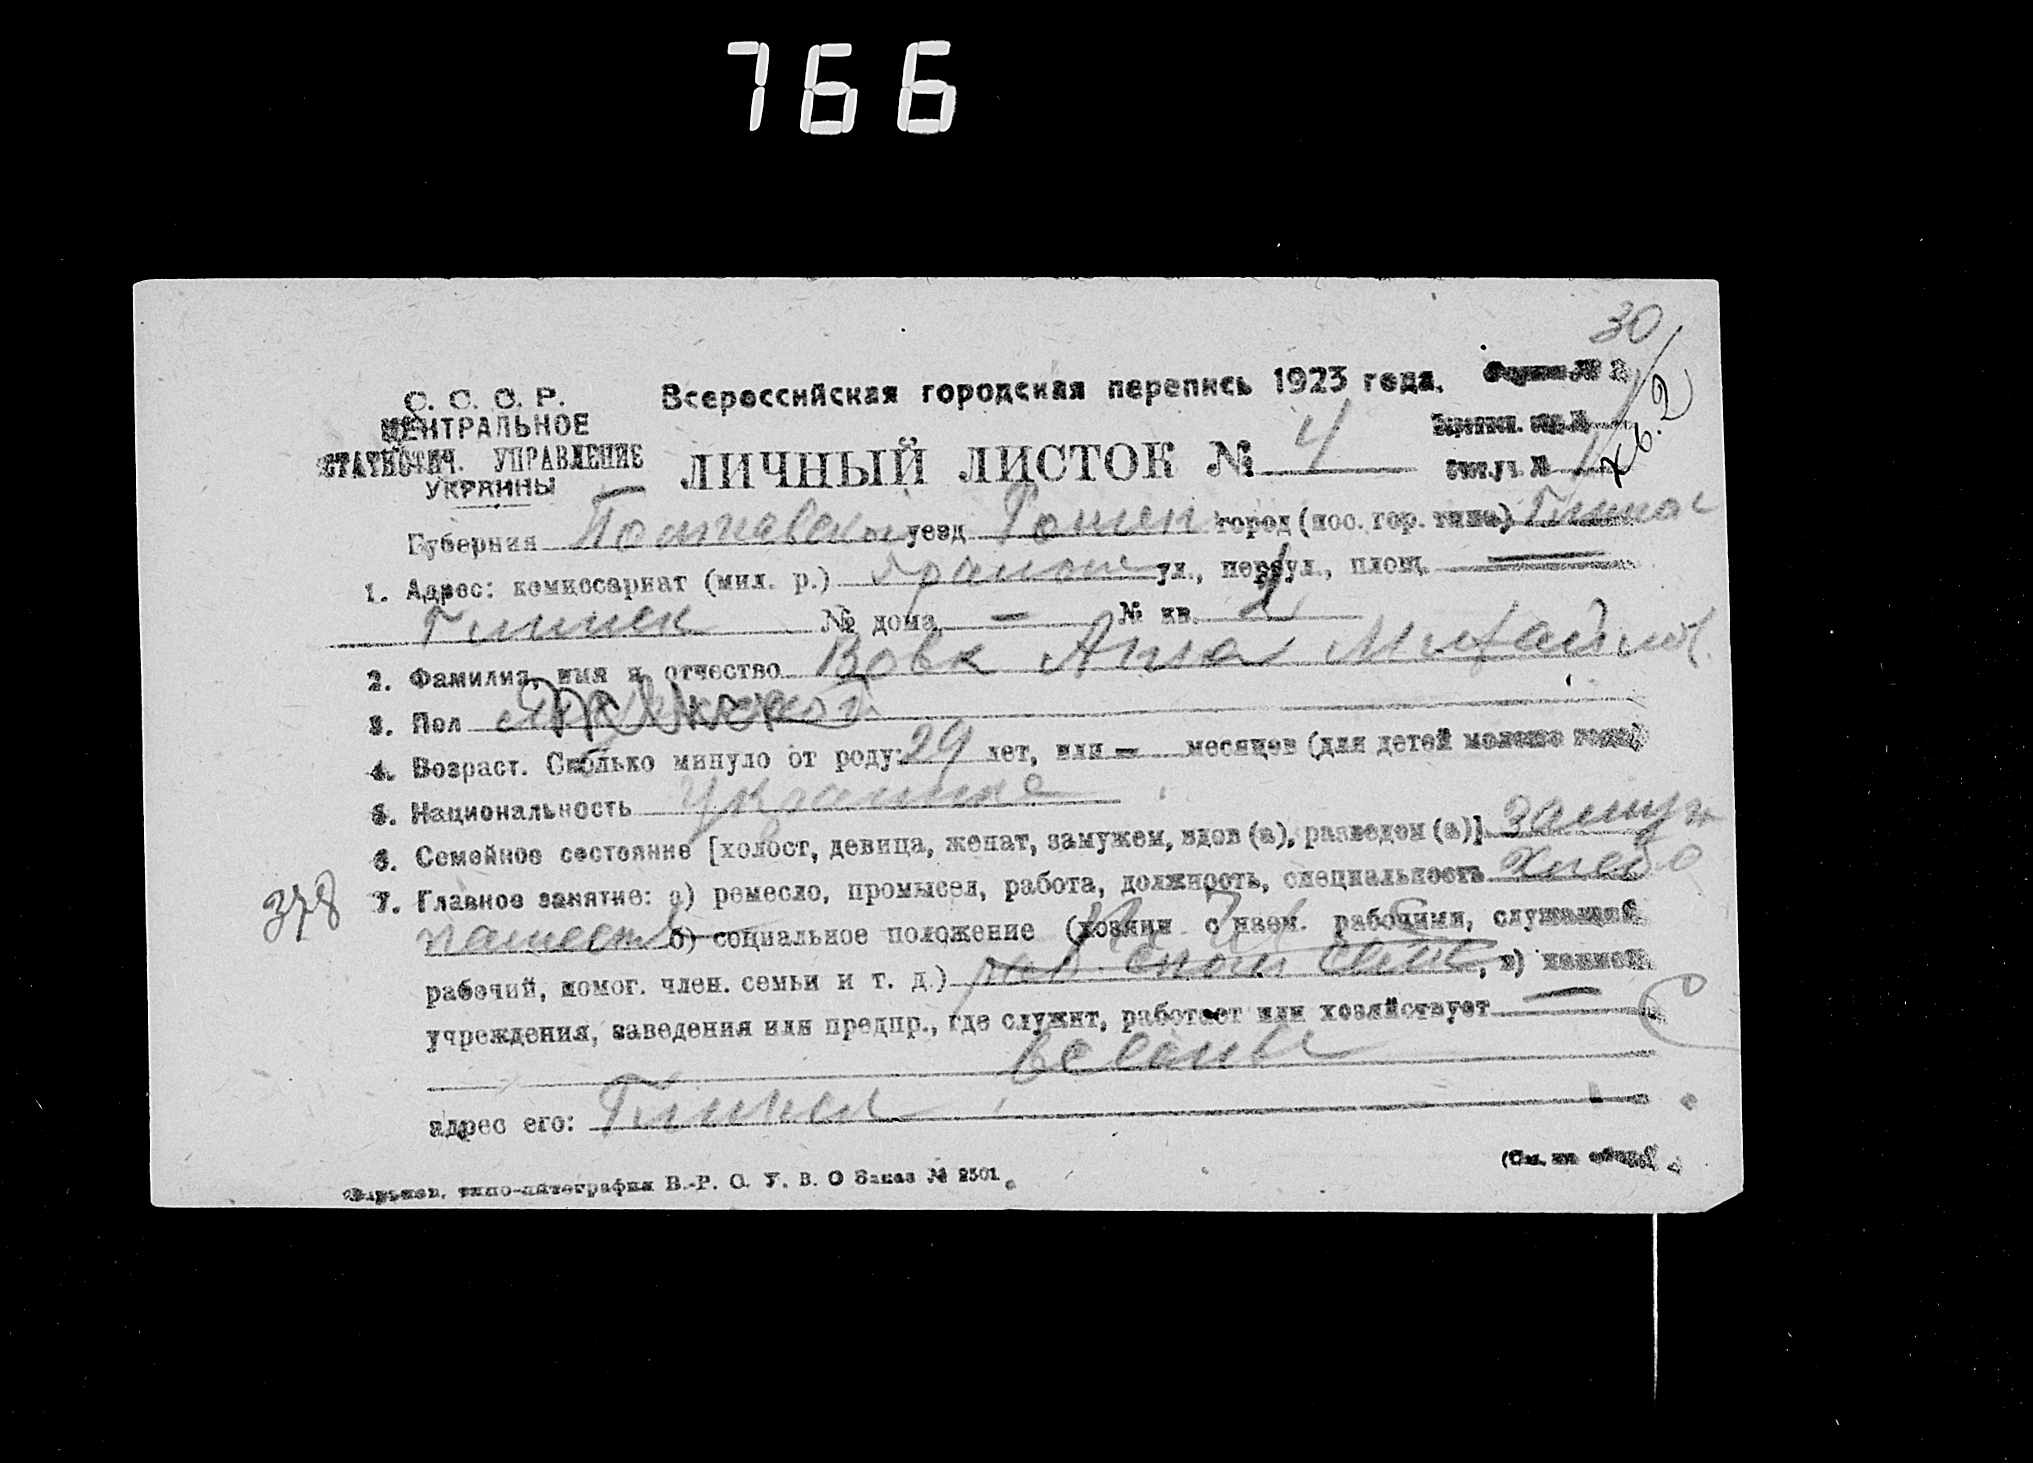 766
30
С. С. С. Р.
ЦЕНТРАЛЬНОЕ
СТАТИСТИЧ. УПРАВЛЕНИЕ
УКРАИНЫ
Всероссийская городская перепись 1923 года.
Форма № 2
кв. 2
ЛИЧНЫЙ ЛИСТОК № 4
Губерния Полтавская уезд Ромен город (пос. гор. типа) Глинск
1. Адрес: комиссариат (мил. р.) ул., переул., площ.
Глинск № дома — № кв.
2. Фамилия, имя и отчество Вовк Анна Михайлов.
3. Пол женской
4. Возраст. Сколько минуло от роду: 29 лет, или — месяцев (для детей моложе года)
5. Национальность Украинка
6. Семейное состояние [холост, девица, женат, замужем, вдов (а), разведен (а)] замуж
378
7. Главное занятие: а) ремесло, промысел, работа, должность, специальность Хлебо
пашест б) социальное положение (хозяин с наем. рабочими, служащий
рабочий, помог. член. семьи и т. д.) , в) наимен.
учреждения, заведения или предпр., где служит, работает или хозяйствует —
адрес его: Глинск
(См. на обороте)
Харьков, типо-литография В.-Р. О. У. В. О Заказ № 2501.